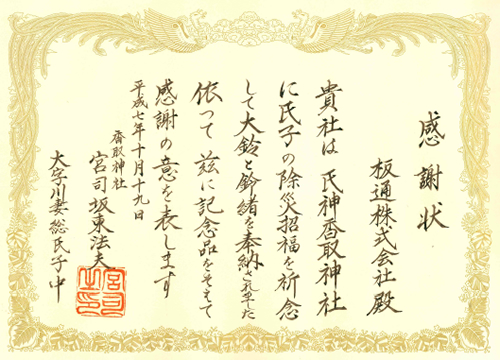 感謝状
板通株式会社殿
貴社は氏神香取神社
に氏子の除災招福を祈念
して大鈴と鈴緒を奉納されました
依つて茲に記念品をそえて
感謝の意を表します
平成七年十月十九日
香取神社
宮司坂東法夫
大字川妻総氏子中